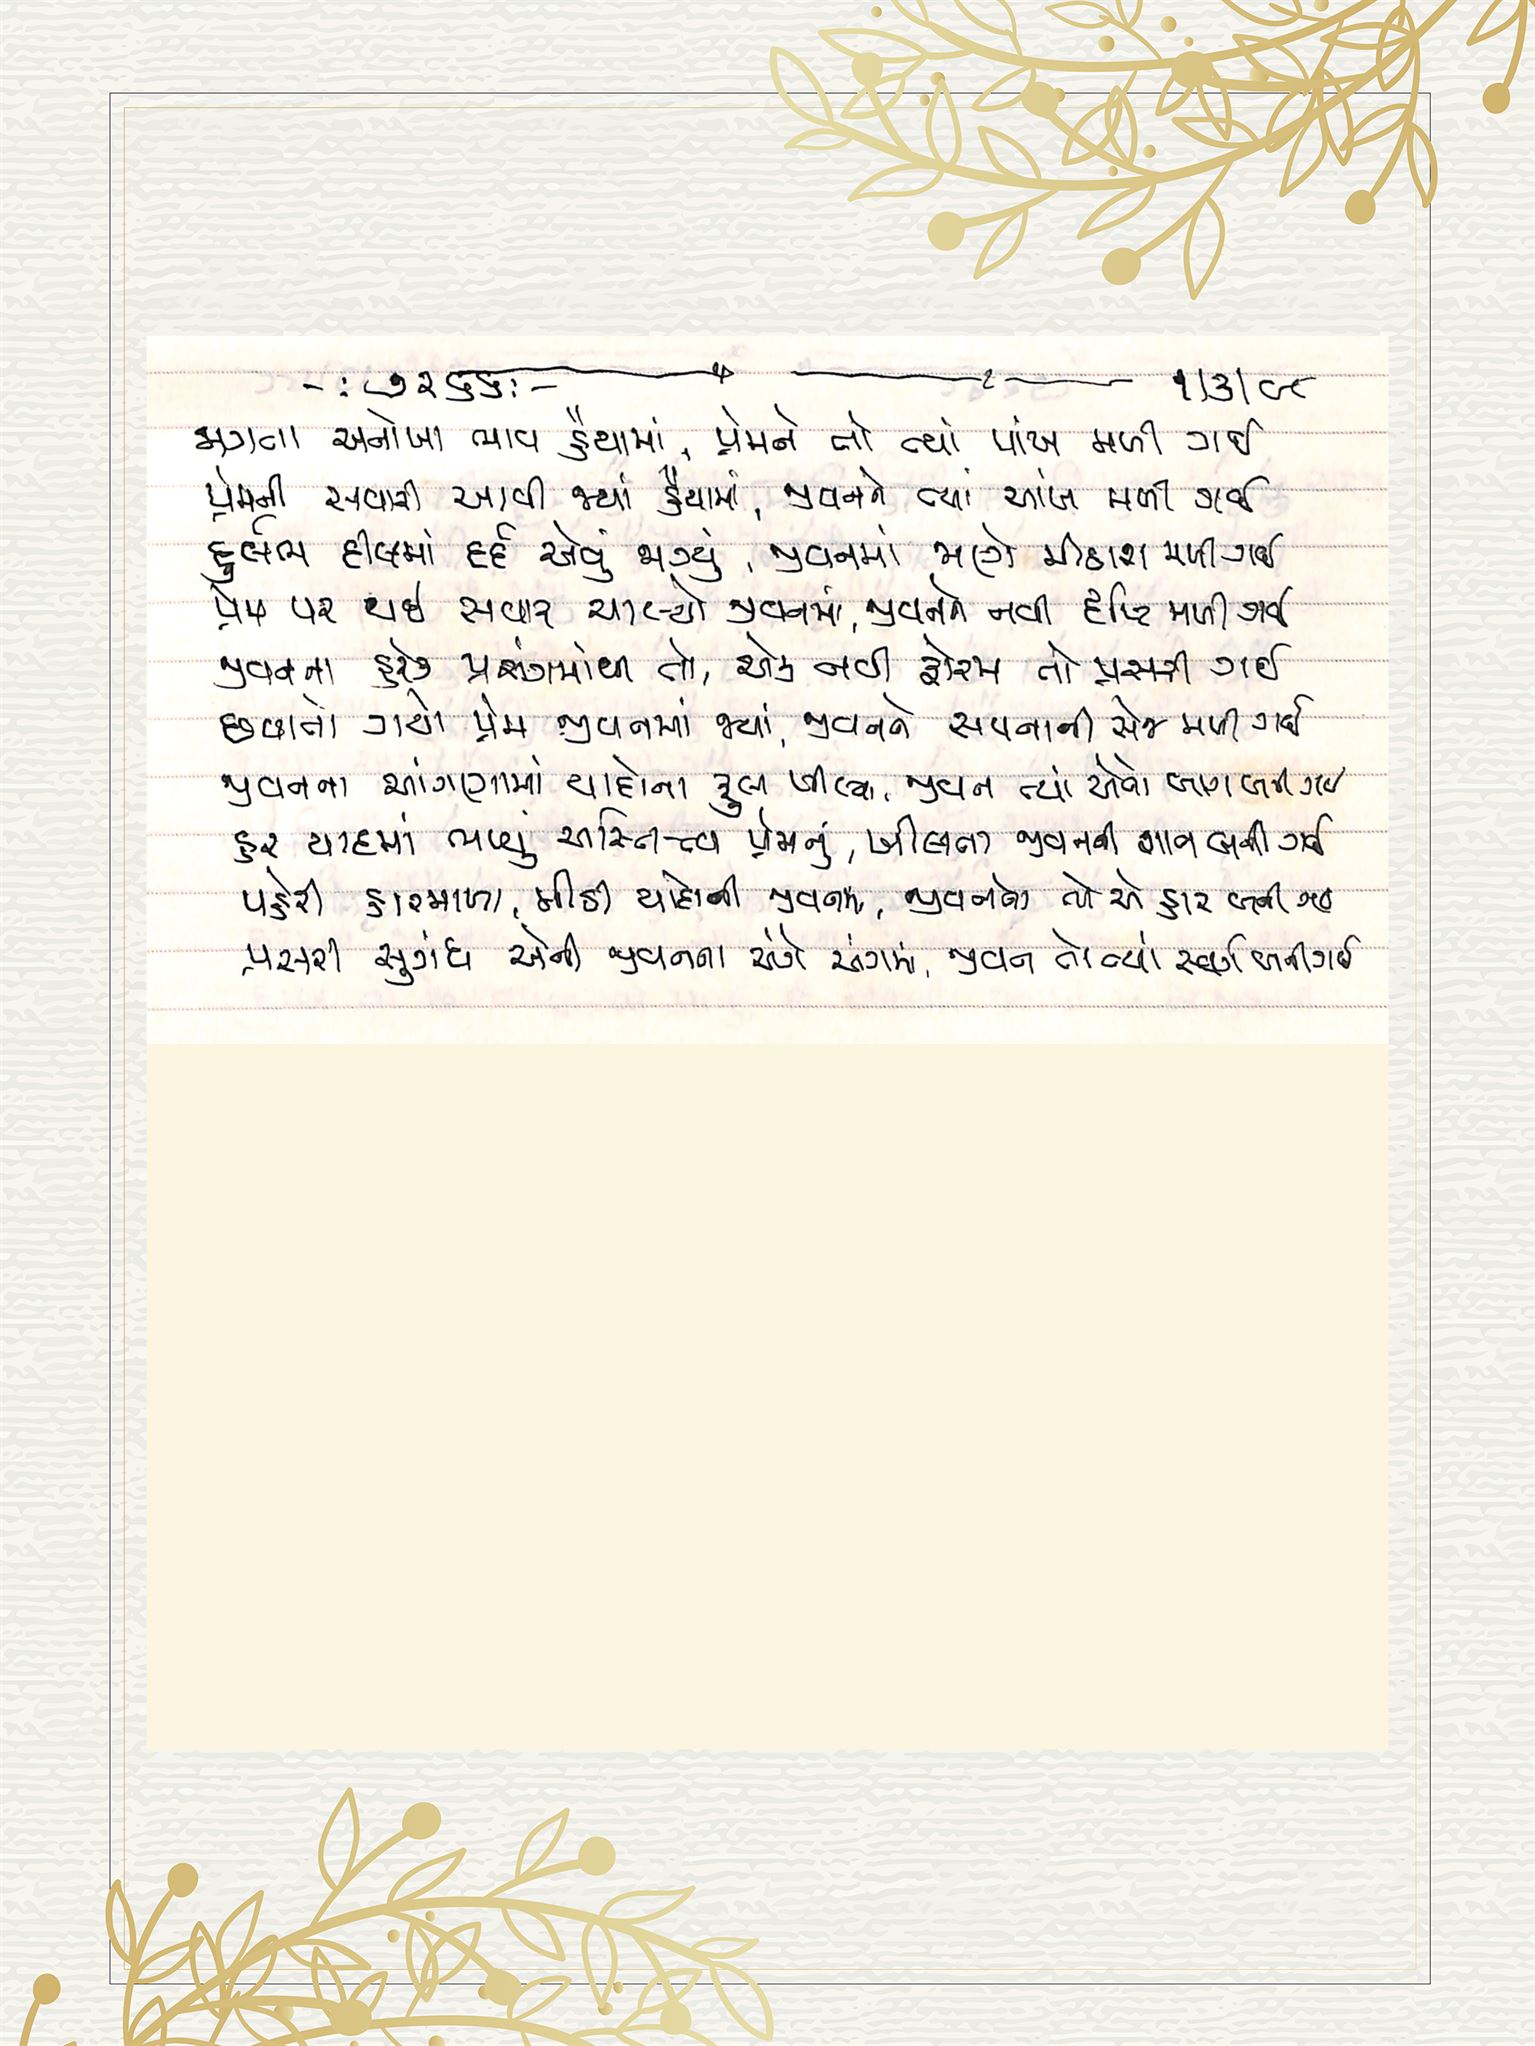 -: ૭૨૬૬ :- ૧/૩/૯૮
જાગતા અનોખા ભાવ હૈયામાં, પ્રેમને તો ત્યાં પાંખ મળી ગઈ
પ્રેમની સવારી આવી જ્યાં હૈયામાં, જીવનને ત્યાં આંખ મળી ગઈ
દુર્લભ દીલમાં દર્દ એવું જાગ્યું, જીવનમાં જાણે મીઠાશ મળી ગઈ
પ્રેમ પર થઈ સવાર ચાલ્યો જીવનમાં, જીવનને નવી દૃષ્ટિ મળી ગઈ
જીવનના હરેક પ્રસંગમાંથી તો, એક નવી ફોરમ તો પ્રસરી ગઈ
છવાતો ગયો પ્રેમ જીવનમાં જ્યાં, જીવનને સપનાની સેજ મળી ગઈ
જીવનના આંગણામાં યાદોના ફુલ ખીલ્યા, જીવન ત્યાં એનો બાગ બની ગઈ
હર યાદમાં ભળ્યું અસ્તિત્ત્વ પ્રેમનું, ખીલતા જીવનની શાન બની ગઈ
પહેરી હારમાળા, મીઠી યાદોની જીવનમાં, જીવનનો તો એ હાર બની ગઈ
પ્રસરી સુગંધ એની જીવનના અંગે અંગમાં, જીવન તો ત્યાં સ્વર્ગ બની ગઈ